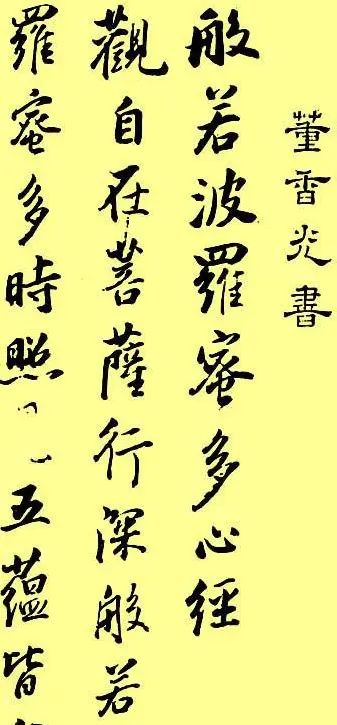 董香光書
般若波羅蜜多心經
觀自在菩薩行深般若
羅蜜多時照五蘊皆